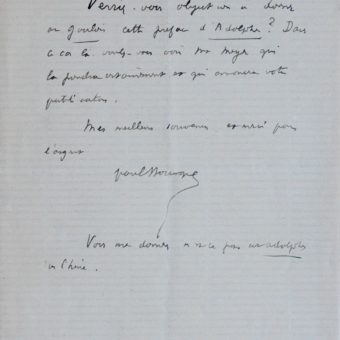 Verrez-vous objection à donner
au Gaulois cette préface d'Adolphe ? Dans
ce cas là voulez-vous voir Mr Meyer qui
la prendra certainement et qui annoncera votre
publication.
Mes meilleurs souvenirs et merci pour
Paul Bourget
Vous me donnez, n'est-ce pas un Adolphe
en Chine.